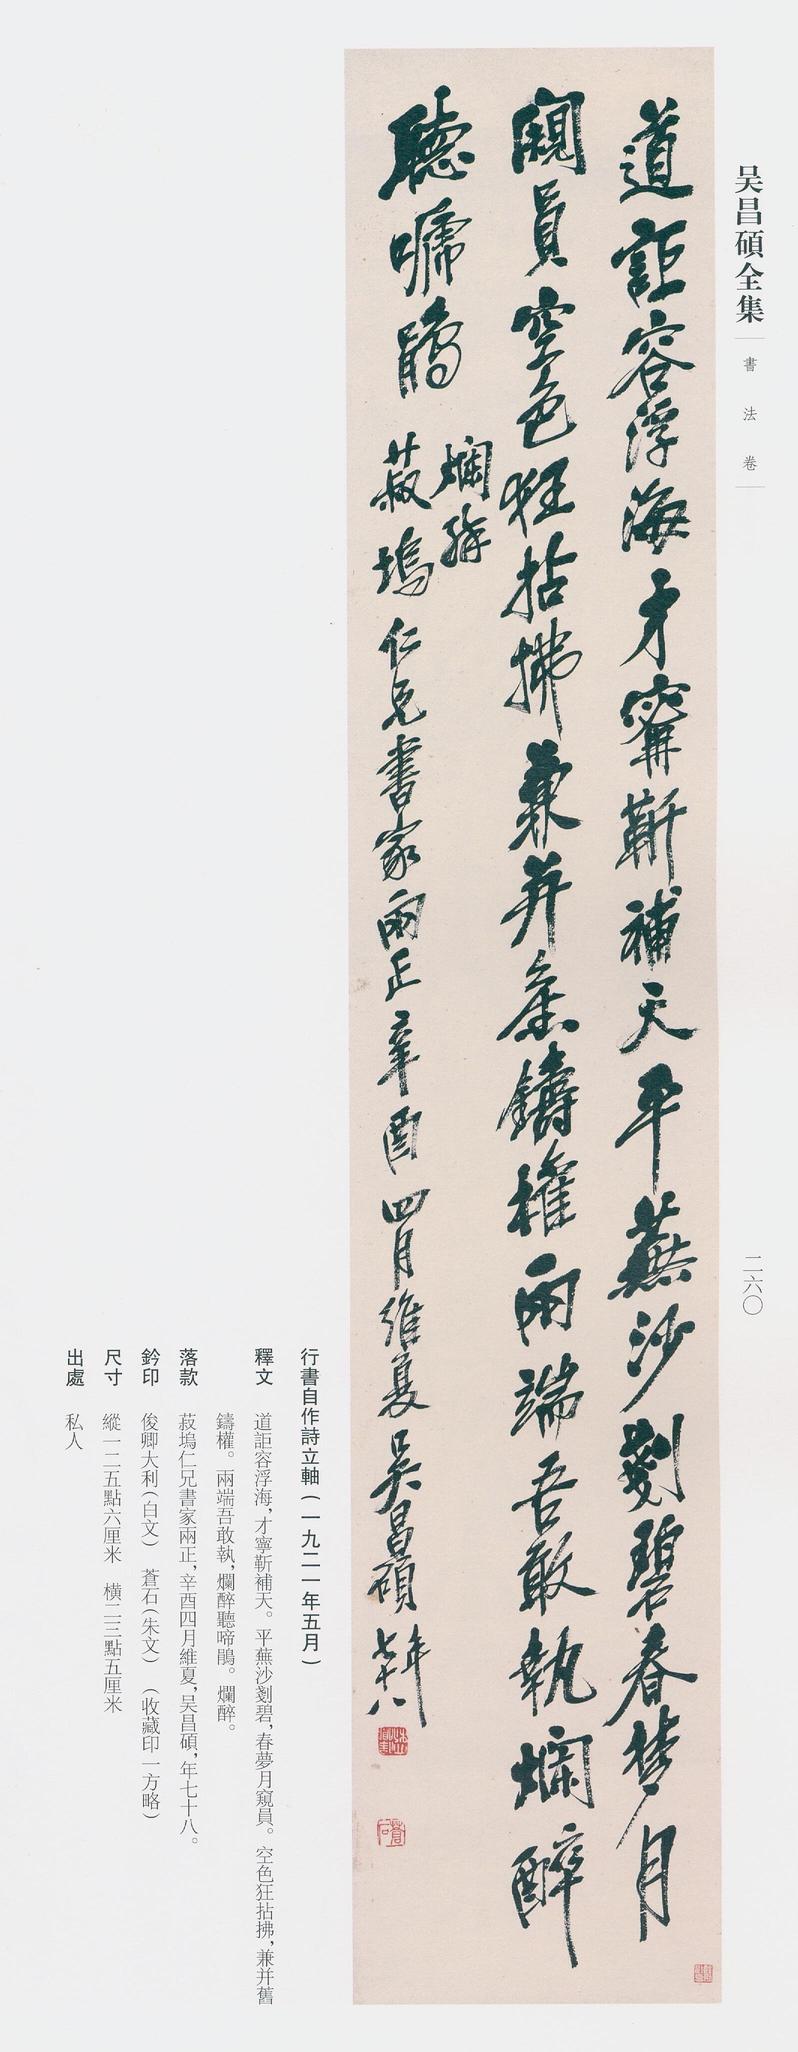 吴昌碩全集
書法卷
二六〇
道詎容浮海才寧靳補天平蕪沙剗碧春夢月
窺員空色狂拈拂兼并舊鑄權兩端吾敢執爛醉
聽嗁鵑
爛醉
菽塢仁兄書家兩正辛酉四月維夏吴昌碩年七十八
行書自作詩立軸(一九二一年五月)
釋文 道詎容浮海,才寧靳補天。平蕪沙剗碧,春夢月窺員。空色狂拈拂,兼并舊
鑄權。兩端吾敢執,爛醉聽啼鵑。爛醉。
落款 菽塢仁兄書家兩正,辛酉四月維夏,吴昌碩,年七十八。
鈐印 俊卿大利(白文) 蒼石(朱文) (收藏印一方略)
尺寸 縱一二五點六厘米 橫二三點五厘米
出處 私人